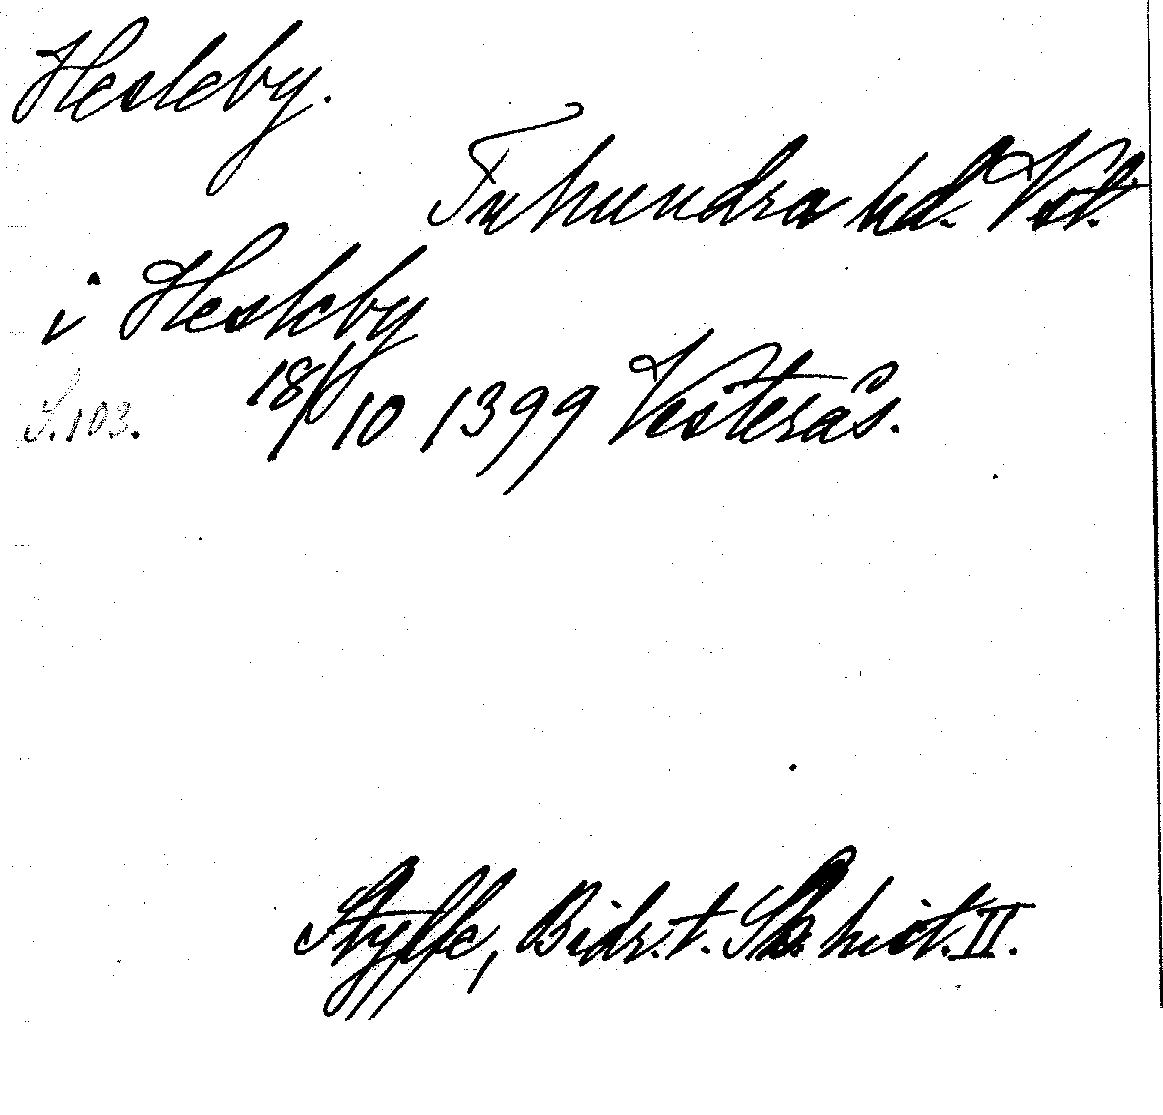 Hesleby.
Tuhundra hd. Vstl.
i Hesleby
S. 103. 18/10 1399 Vesterås.
Styffe, Bidr. t. Sk. hist. II.